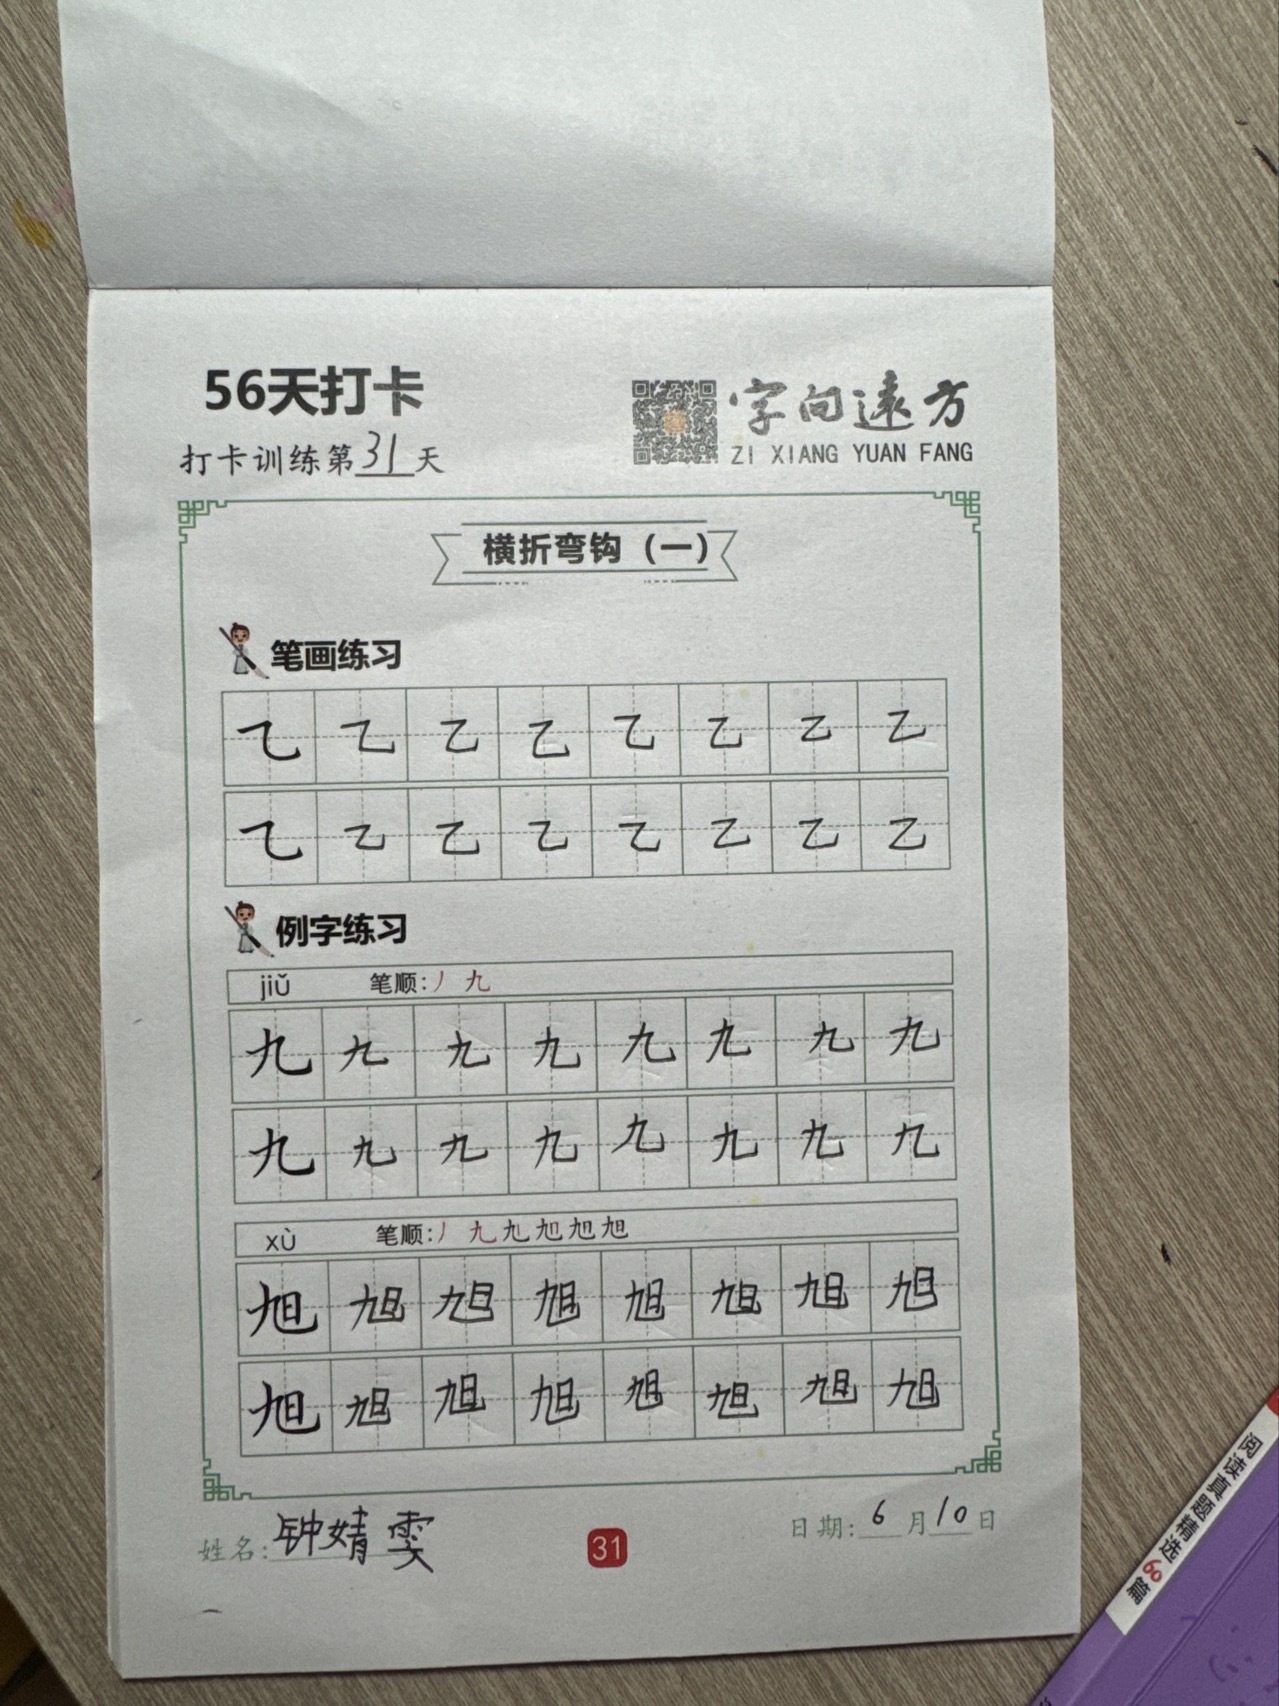 56天打卡
字向遠方
打卡训练第31天
ZI XIANG YUAN FANG
横折弯钩（一）
笔画练习
乙 乙 乙 乙 乙 乙 乙 乙
乙 乙 乙 乙 乙 乙 乙 乙
例字练习
jiǔ 笔顺：丿 九
九 九 九 九 九 九 九 九
九 九 九 九 九 九 九 九
xù 笔顺：丿 九 九 旭 旭 旭
旭 旭 旭 旭 旭 旭 旭 旭
旭 旭 旭 旭 旭 旭 旭 旭
姓名：钟婧雯
31
日期：6月10日
阅读真题精选60篇